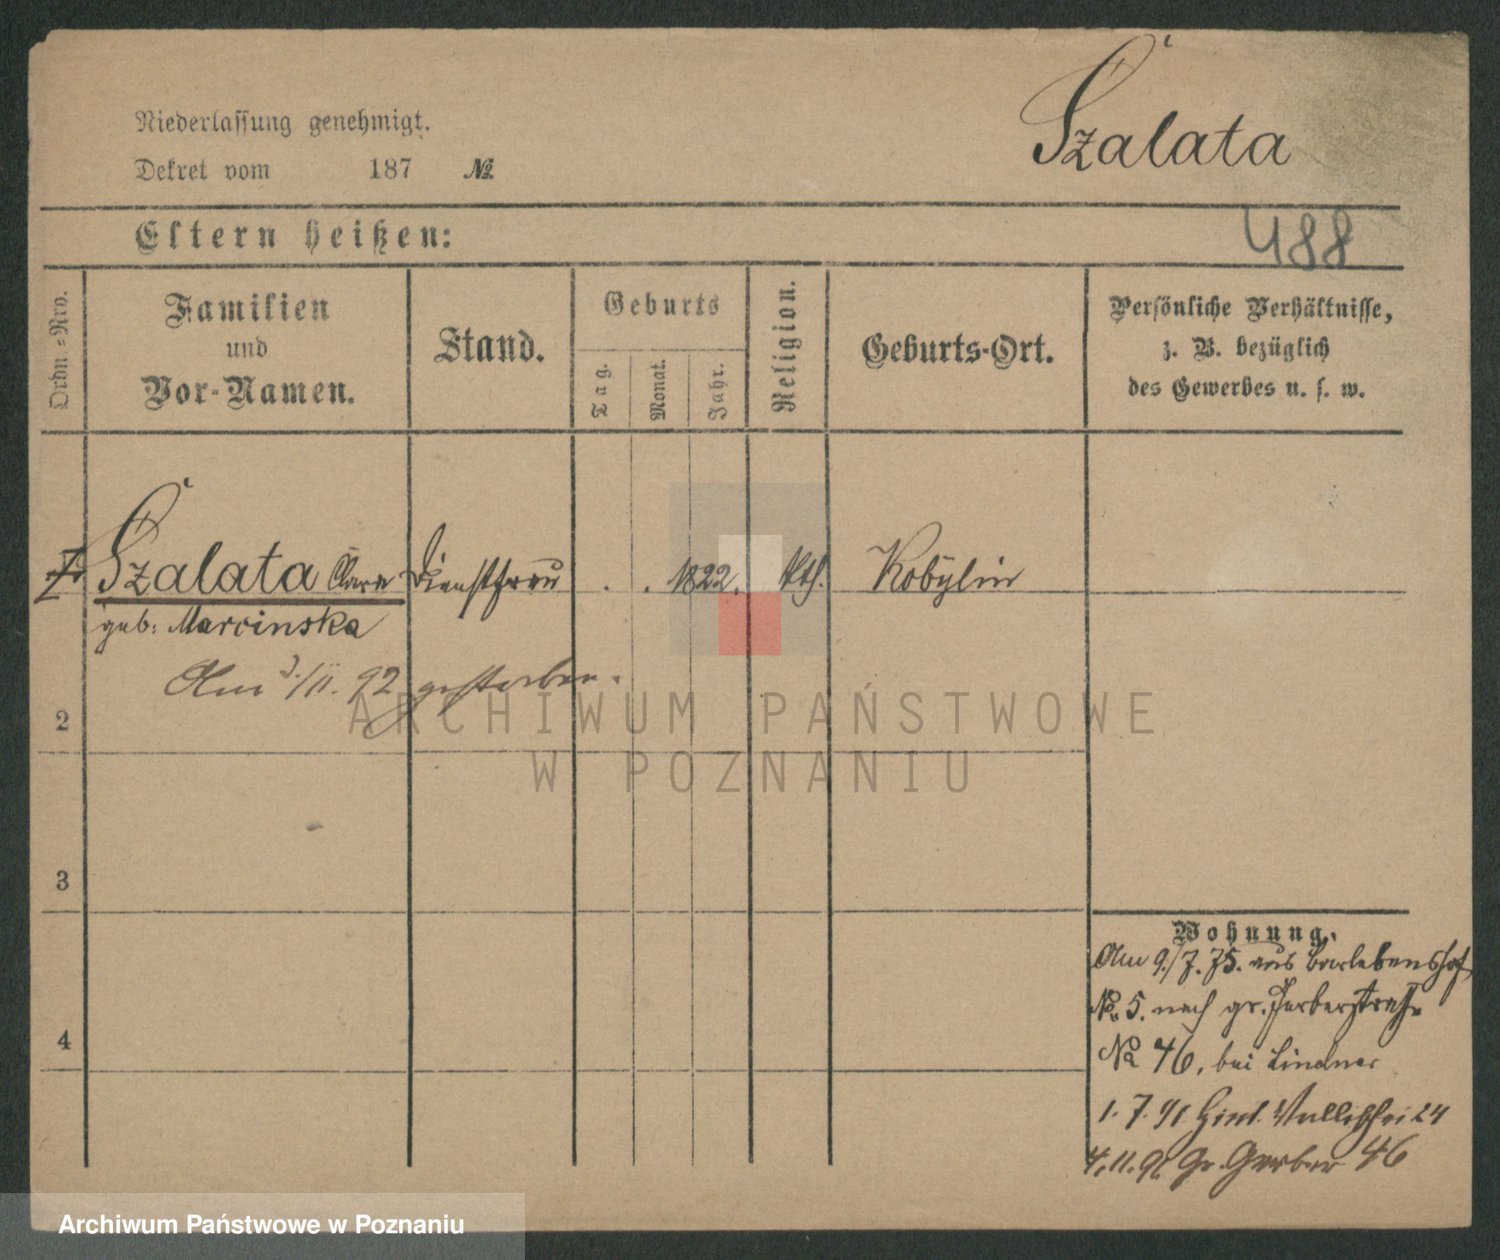 Szalata
Niederlassung genehmigt.
Dekret vom 187 №
488
Eltern heißen:
Ordn.=Nro.
Familien
und
Vor-Namen.
Stand.
Geburts
Tag.
Monat.
Jahr.
Religion.
Geburts-Ort.
Persönliche Verhältnisse,
z. B. bezüglich
des Gewerbes u. s. w.
Szalata Clara Dienstfrau . . 1822. kth. Kobylin
geb: Marcinska
Am 3./11. 92 gestorben.
2
3
4
Wohnung.
Am 9./7. 75. aus Barlebenshof
No. 5. nach gr. Gerberstraße
No 46, bei Lindner
1. 7. 91 Hint. Wallischei 24
4. 11. 91 Gr. Gerber 46
ARCHIWUM PAŃSTWOWE
W POZNANIU
Archiwum Państwowe w Poznaniu